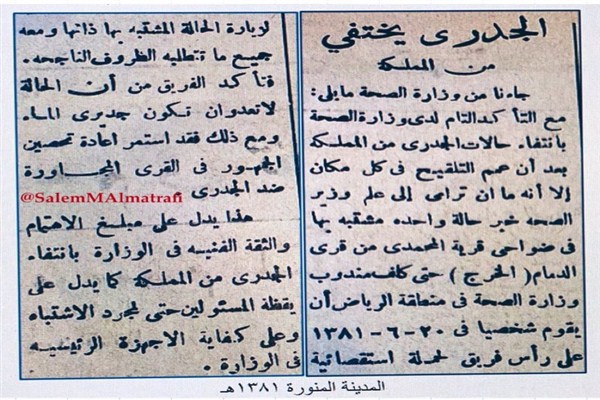 الجدرى يختفي
من المملكة
جاءنا من وزارة الصحة مايلى:
مع التأكد التام لدى وزارة الصحة
بانتفاء حالات الجدرى من المملكة
بعد أن عمم التلقيح فى كل مكان
إلا أنه ما ان ترامى إلى علم وزير
الصحه خبر حالة واحده مشتبه بها
فى ضواحى قرية المحمدى من قرى
الدمام (الخرج) حتى كلف مندوب
وزارة الصحة فى منطقة الرياض أن
يقوم شخصيا فى ٢٠-٦-١٣٨١
على رأس فريق لحملة استقصائية
لزيارة الحالة المشتبه بها ذاتها ومعه
جميع ما تتطلبه الظروف الناجحه.
فتأكد الفريق من أن الحالة
لاتعدوان تكون جديرى الماء
ومع ذلك فقد استمر اعادة تحصين
الجمهور فى القرى المجاورة
ضد الجدرى
@SalemMAlmatrafi
هذا يدل على مبلغ الاهتمام
والثقة الفنيه فى الوزارة بانتفاء
الجدرى من المملكة كما يدل على
يقظة المسئولين حتى لمجرد الاشتباه
وعلى كفاية الاجهزة الرئيسيه
فى الوزارة.
المدينة المنورة ١٣٨١هـ